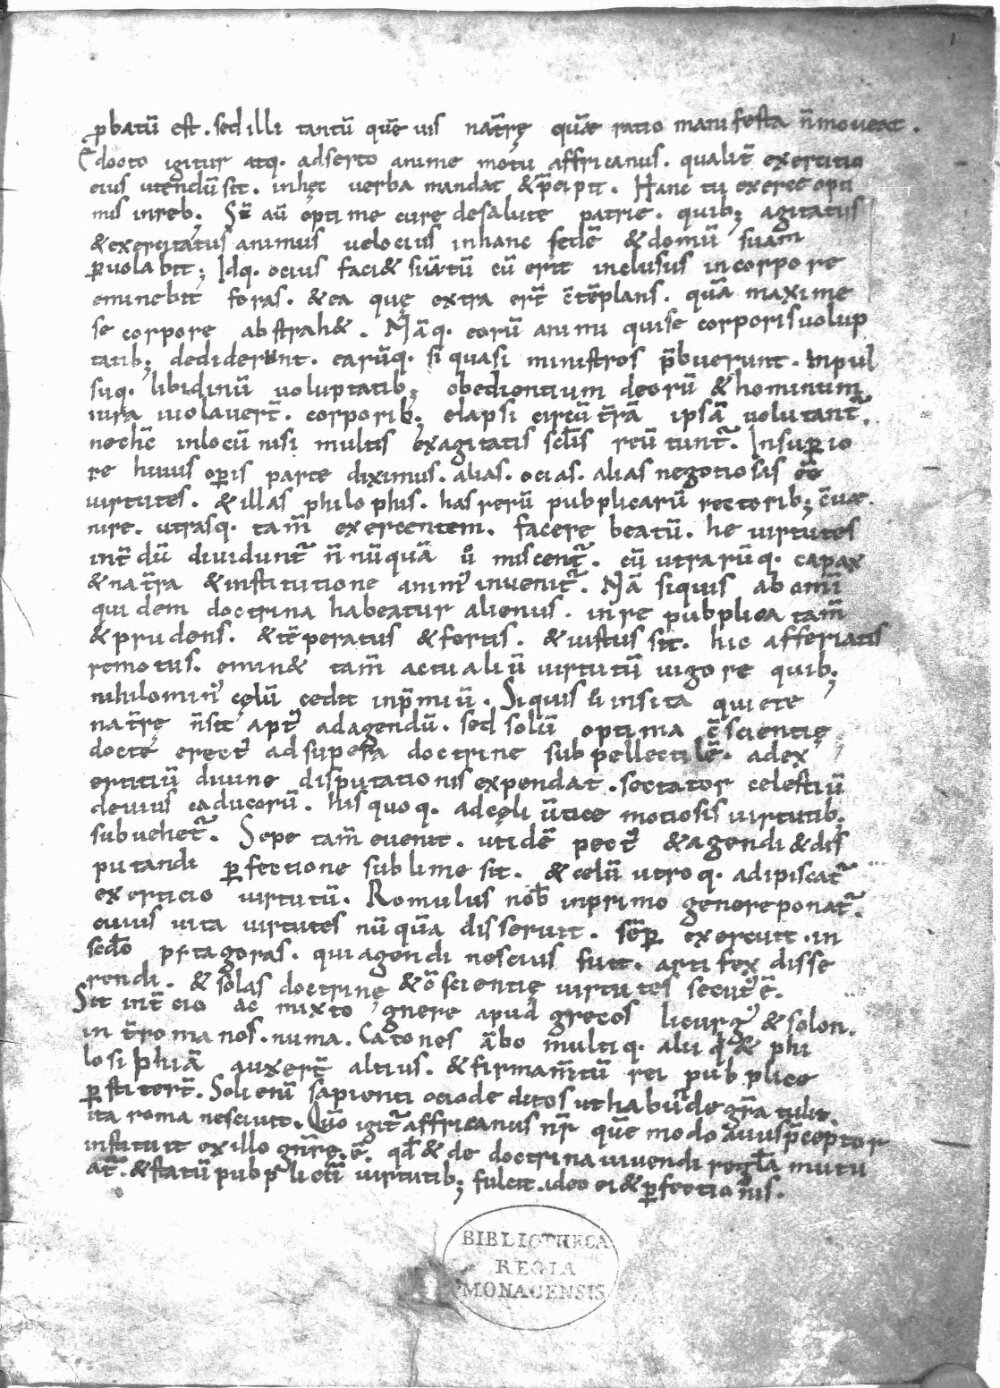 ꝓbatū est. sed illi tantū quē uis nat̄rę quā ratio manifesta n̄ moueat.
Edocto igitur atq. adserto anime motu affricanus. qualit̄ exertitio
eius utendū sit. in hęc verba mandat & p̄cipit. Hanc tu exerce opti
mis in reb; Sт̄ aū optime cure de salute patrie. quib; agitatus
& exercitatus animus velocius in hanc sedē & domū suam
ꝑuolabit; Idq. ocius faci& si iā tū cū erit inclusus in corpore
eminebit foras. & ea quę extra er̄t c̄tēplans. quā maxime
se corpore abstrah&. Nāq. eorū animi qui se corporis volup
tatib; dediderunt. earūq. si quasi ministros p̄buerunt. inpul
suq. libidinū voluptatib; obedientium deorū & hominum
iura uiolauer̄t. corporib; elapsi circū t̄rā ipsā volutant̄.
nec hc̄ in locū nisi multis exagitatis sct̄is reūtunt̄. In suꝑio
re huius oꝑis parte diximus. alias. ociās. alias negotiosas eē
virtutes. & illas philophis. has rerū pubplicarū rectorib; c̄uæ
nire. utrasq. tam̄ exercentem. facere beatū. he virtutes
int̄dū diuidunt̄ n̄nūquā ū miscent̄. cū utrarūq. capax
& nat̄ra & institutione animꝰ inuenit̄. Nā siquis ab omī
quidem doctrina habeatur alienus. in re pubplica tam̄
& prudens. & tēperatus & fortis. & iustus sit. hic afferiatis
remotus. emin& tam̄ actualiū virtutū uigore quib;
nihilominꝰ celū cedit in p̄miū. Siquis ū insita quiete
nat̄rę n̄ sit aptꝰ ad agendū. sed solū optima c̄scientię
docte erectꝰ ad supera doctrine subpellectilē. ad ex
ertitiū diuine disputationis expendat. sectator celestiū
deuius caducorū. his quoq. ad cęli ūtice motiosis virtutib.
subuehet̄. Sepe tam̄ euenit. ut idē pectꝰ & agendi & dis
putandi ꝑfectione sublime sit. & celū utroq. adipiscat̄
exerticio virtutū. Romulus nob̄ in primo genere ponat̄.
cuius uita virtutes nūquā disseruit. sēꝑ exercuit. in
scd̄o pytagoras. qui agendi nescius fuit. artifex disse
rendi. & solas doctrine & c̄scientię virtutes secutꝰ ē.
Sit in t̄cio ac mixto gnere apud grecos licurgꝰ & solon.
int̄ romanos. numa. Catones ābo multiq. alii q̄ & phi
losiphiā auxer̄t altius. & firmam̄tū rei pubplice
ꝑstiter̄t. Soli enū sapienti ocio deditos ut habūde gr̄a tulit.
ita roma nesciuit. Qm̄ igit̄ affricanus nr̄ quē modo auus p̄ceptor
instituit ex illo gn̄re. ē. qd̄ & de doctrina uiuendi regl̄a mutu
at̄. & statū pubpliciū virtutib; fulcit. ideo ei & ꝑfectionis.
BIBLIOTHECA
REGIA
MONACENSIS